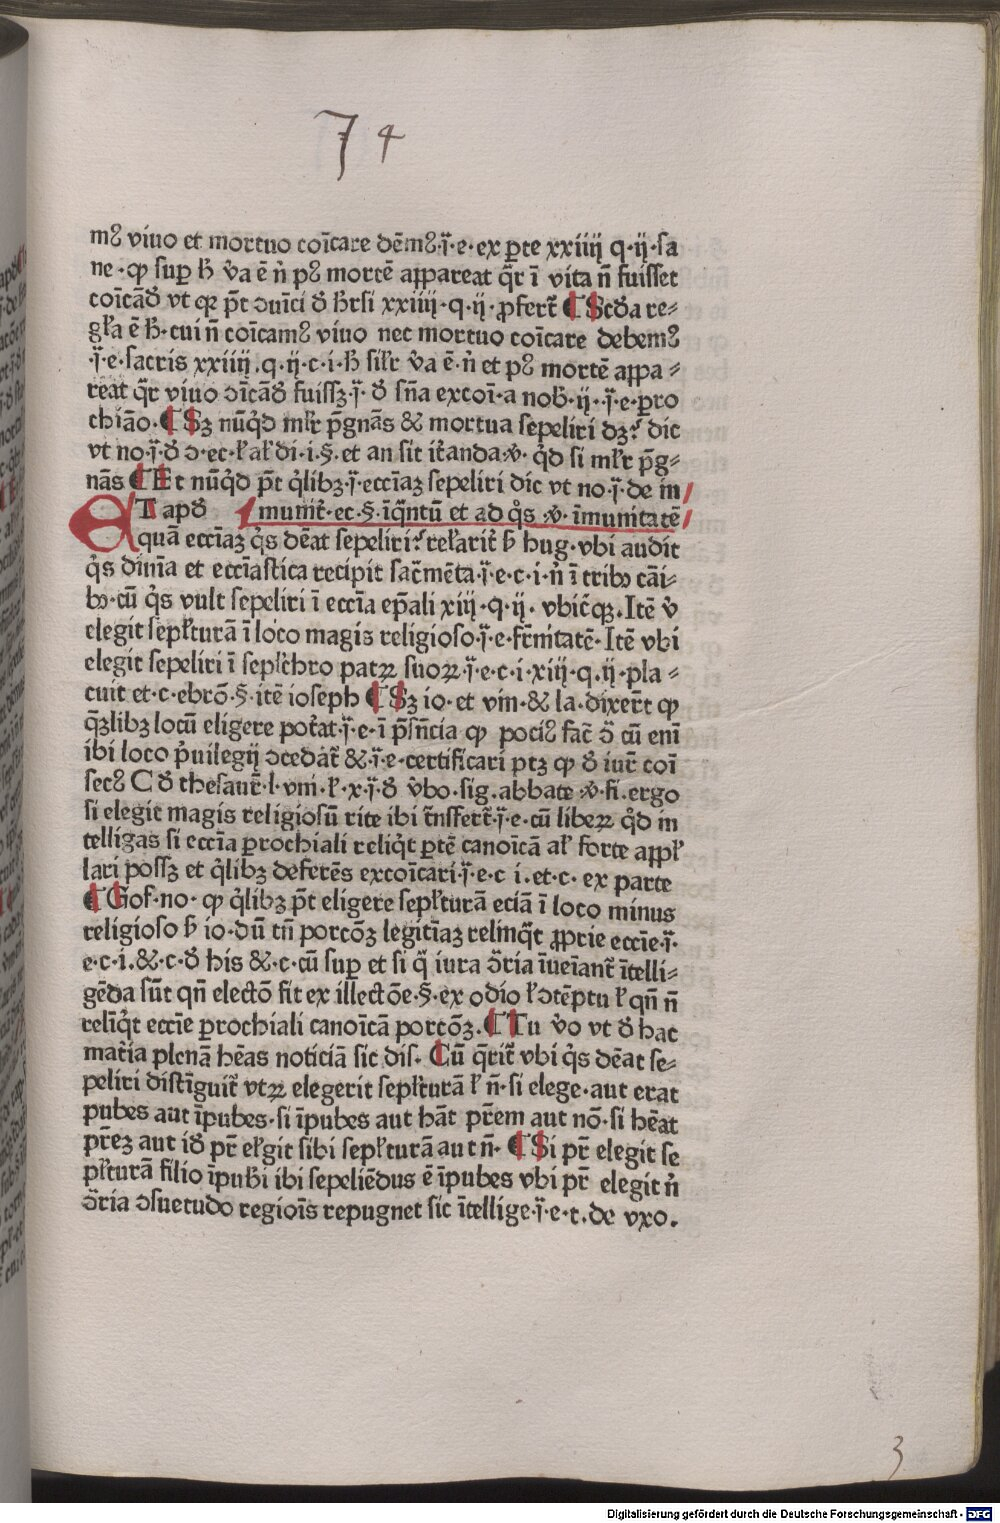 74
mꝰ viuo et mortuo coīcare dēmꝰ·ī·e·ex ꝑte xxiiij q·ij·sa
ne·ꝙ suꝑ ħ v̄a ē n̄ pꝰ mortē aꝑpareat q̄r ī vita n̄ fuisset
coīcāđ vt qꝛ p̄t ɔuīci đ ħrsi xxiiij·q·ij·ꝓfert̄ ¶ Scđa re⸗
gła ē ħ·cui n̄ coīcamꝰ viuo nec mortuo coīcare debemꝰ
·ī·e·sacris xxiiij.q·ij·c·i·ħ sił'r v̄a ē·n̄ et pꝰ mortē aꝑpa⸗
reat q̄r viuo ɔīcāđ fuissꝫ·ī·đ sn̄a excoī·a nob̄·ij·ī·e·ꝑro
chiāo·¶ Sꝫ nūq̇d mł'r p̄gnās & mortua sepeliri dꝫ? dic
vt no·ī·đ ɔ·ec·ł ał' di·i·§·et an sit iťanda·v̄·q̇d si mł'r p̄g⸗
nās ¶ Et nūq̇d p̄t q̇libꝫ·ī·ecciaꝫ sepeliri dic vt no·ī·de in
ET apđ munit̄·ec·§·īq̄ntū et ad q̇s·v̄·īmunitatē
quā ecciaꝫ q̇s dēat sepeliri? refarit̄ b̄ hug·vbi audit
q̇s diuīa et ecciastica recipit sac̄mēta·ī·e·c·i·n̄ ī tribꝫ cāi⸗
bꝫ·cū q̇s vult sepeliri ī eccīa ep̄ali xiij·q·ij· vbic̄qꝫ.Itē v̄
elegit sepł'turā ī loco magis religioso·ī·e·fr̄nitatē·Itē vbi
elegit sepeliri ī sepł'chro patꝝ suoꝝ·ī·e·c·i·xiij·q.ij·pla⸗
cuit et·c·ebrō·§·itē ioseph ¶ Sꝫ io·et vin·& la·dixer̄t ꝙ
q̄ꝫlibꝫ locū eligere poťat·ī·e·ī p̄sn̄cia ꝙ pociꝰ fac̄ ɔ̄ cū enī
ibi loco p̓uilegij ɔcedāt̄ &·ī·e·certificari ptꝫ ꝙ đ iur̄ coī
secꝰ C đ thesaur̄·l·vni·ł·x·ī·đ v̓bo·sig.abbate·v̄·fi.ergo
si elegit magis religiosū rite ibi t̄nsfert̄·ī·e·cū libeꝝ q̇d in
telligas si eccīa ꝑrochiali reliq̇t ꝑtē canoīcā ał' forte aꝑpł'
lari possꝫ et q̇libꝫ deferēs excoīcari·ī·e·c i.et·c· ex parte
¶ Gof·no· ꝙ q̇libꝫ p̄t eligere sepł'turā eciā ī loco minus
religioso b̄ io·dū tn̄ porcōꝫ legitīaꝫ relinq̄t ꝓprie eccīe·ī·
e·c·i.&·c·đ his &·c·cū suꝑ et si q̄ iura ɔ̄ria īueīant̄ ītelli⸗
gēda sūt qn̄ electō fit ex illectōe·§·ex odio ł ɔtēptu ł qn̄ n̄
reliq̇t eccīe ꝑrochiali canoīcā porcōꝫ.¶ Tu v̓o vt đ hac
maťia plenā hēas noticiā sic dis· Cū q̄rit̄ vbi q̇s dēat se⸗
peliri distīguit̄ vtꝝ elegerit sepł'turā ł n̄·si elege·aut erat
pubes aut īpubes·si īpubes aut hāt pr̄em aut nō·si hēat
pr̄eꝫ aut iđ pr̄ eł'git sibi sepł'turā aut n̄·¶ Si pr̄ elegit se
pł'turā filio īpub̓i ibi sepeliēdus ē īpubes vbi pr̄ elegit n̄
ɔ̄ria ɔsuetudo regiōis repugnet sic ītellige·ī·e·t.de vxo.
3
Digitalisierung gefördert durch die Deutsche Forschungsgemeinschaft - DFG